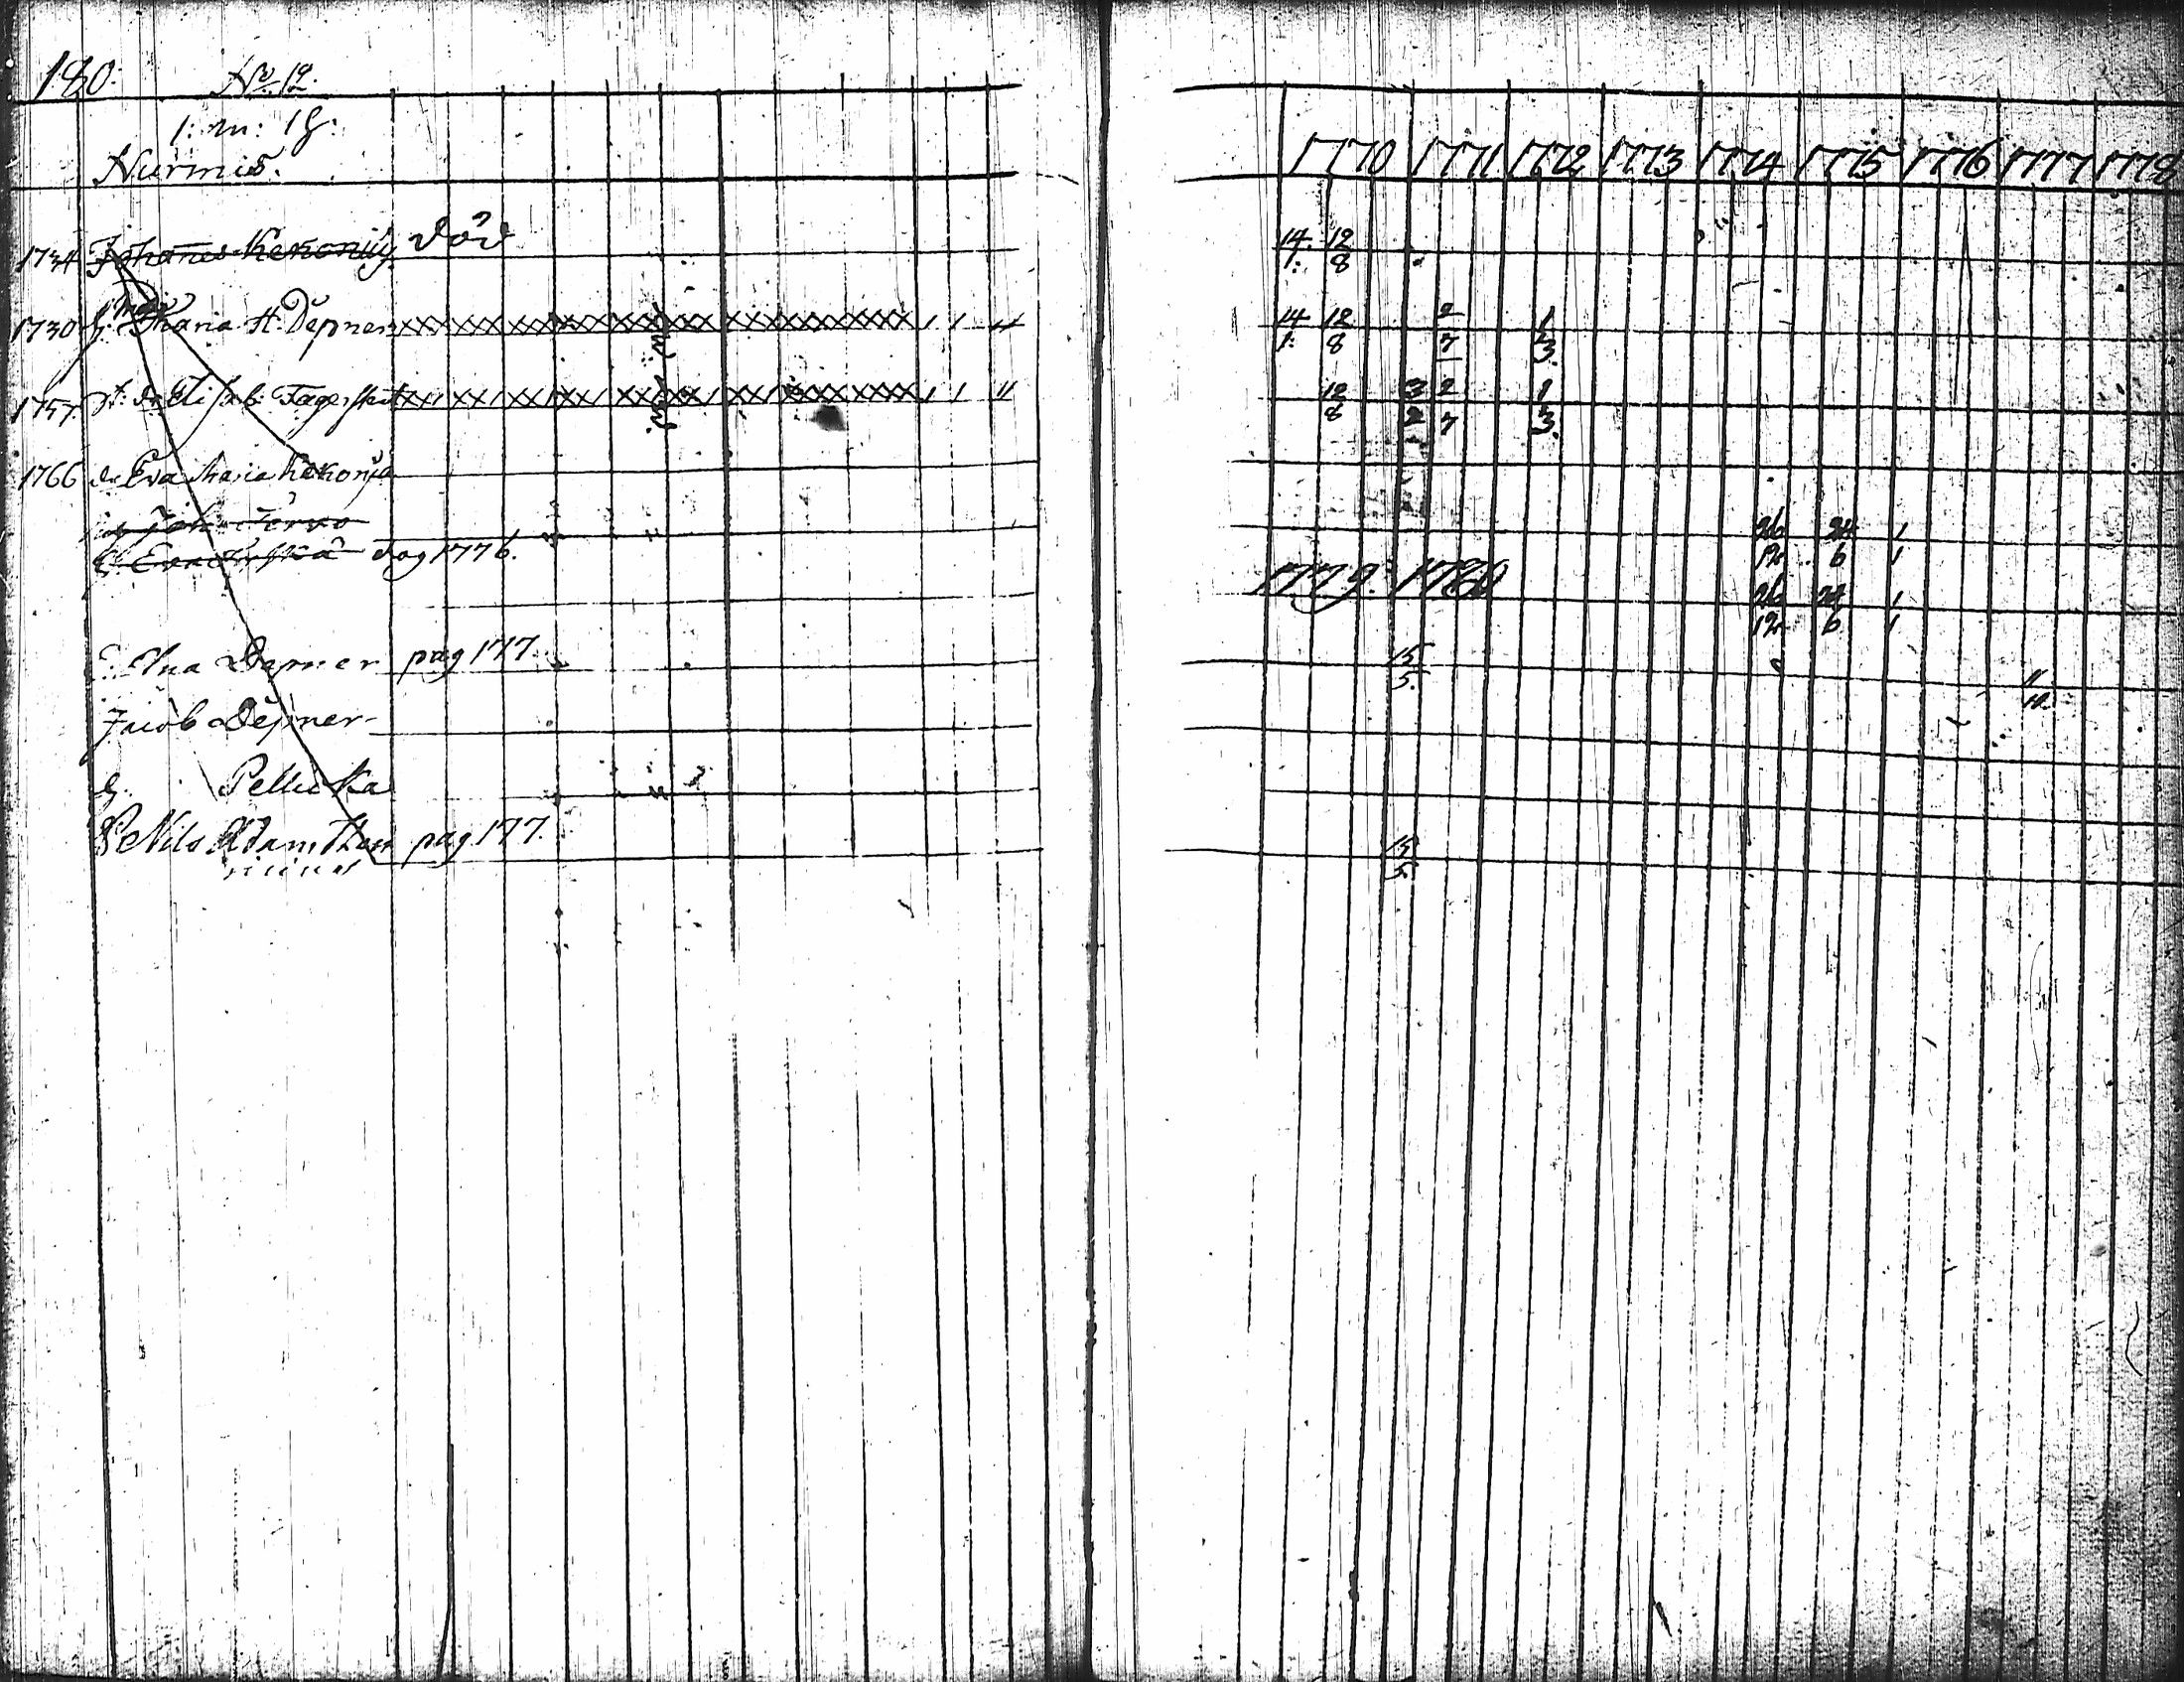 180. No 12.
1: m: 1 h:
Nurmis.
1770 1771 1772 1773 1774 1775 1776 1777 1778
1734 Johanes Kekonius död 14 12
1: 8
1730 h: Maria H: Depner 1 1 11 14 12 2 1
1: 8 7 3.
1757. Elisab: 1 1 11 12 3 2 1
8 2 7 3.
1766 dr Eva Maria Kekonia
Joh: Tervo 26 24 1
h. Eva pag 1776. 12 6 1
1779. 1780 26 24 1
12 6 1
Ana Depner pag 177. 15 11
5. 10.
Jacob Depner
h. Pellicka
Nils Adam Thom pag 177. 15
5.